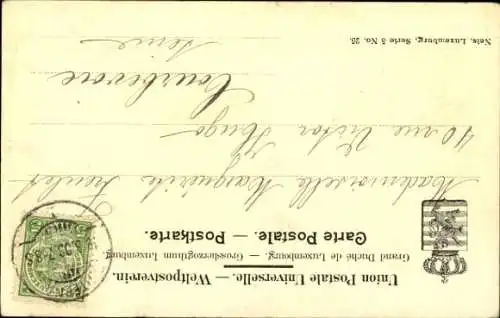 Union Postale Universelle. — Weltpostverein.
Grand Duché de Luxembourg. — Grossherzogthum Luxemburg
Carte Postale. — Postkarte.
Mademoiselle Marguerite
40 rue Victor Hugo
Courbevoie
Seine
Nels, Luxemburg, Serie 5 No. 25.